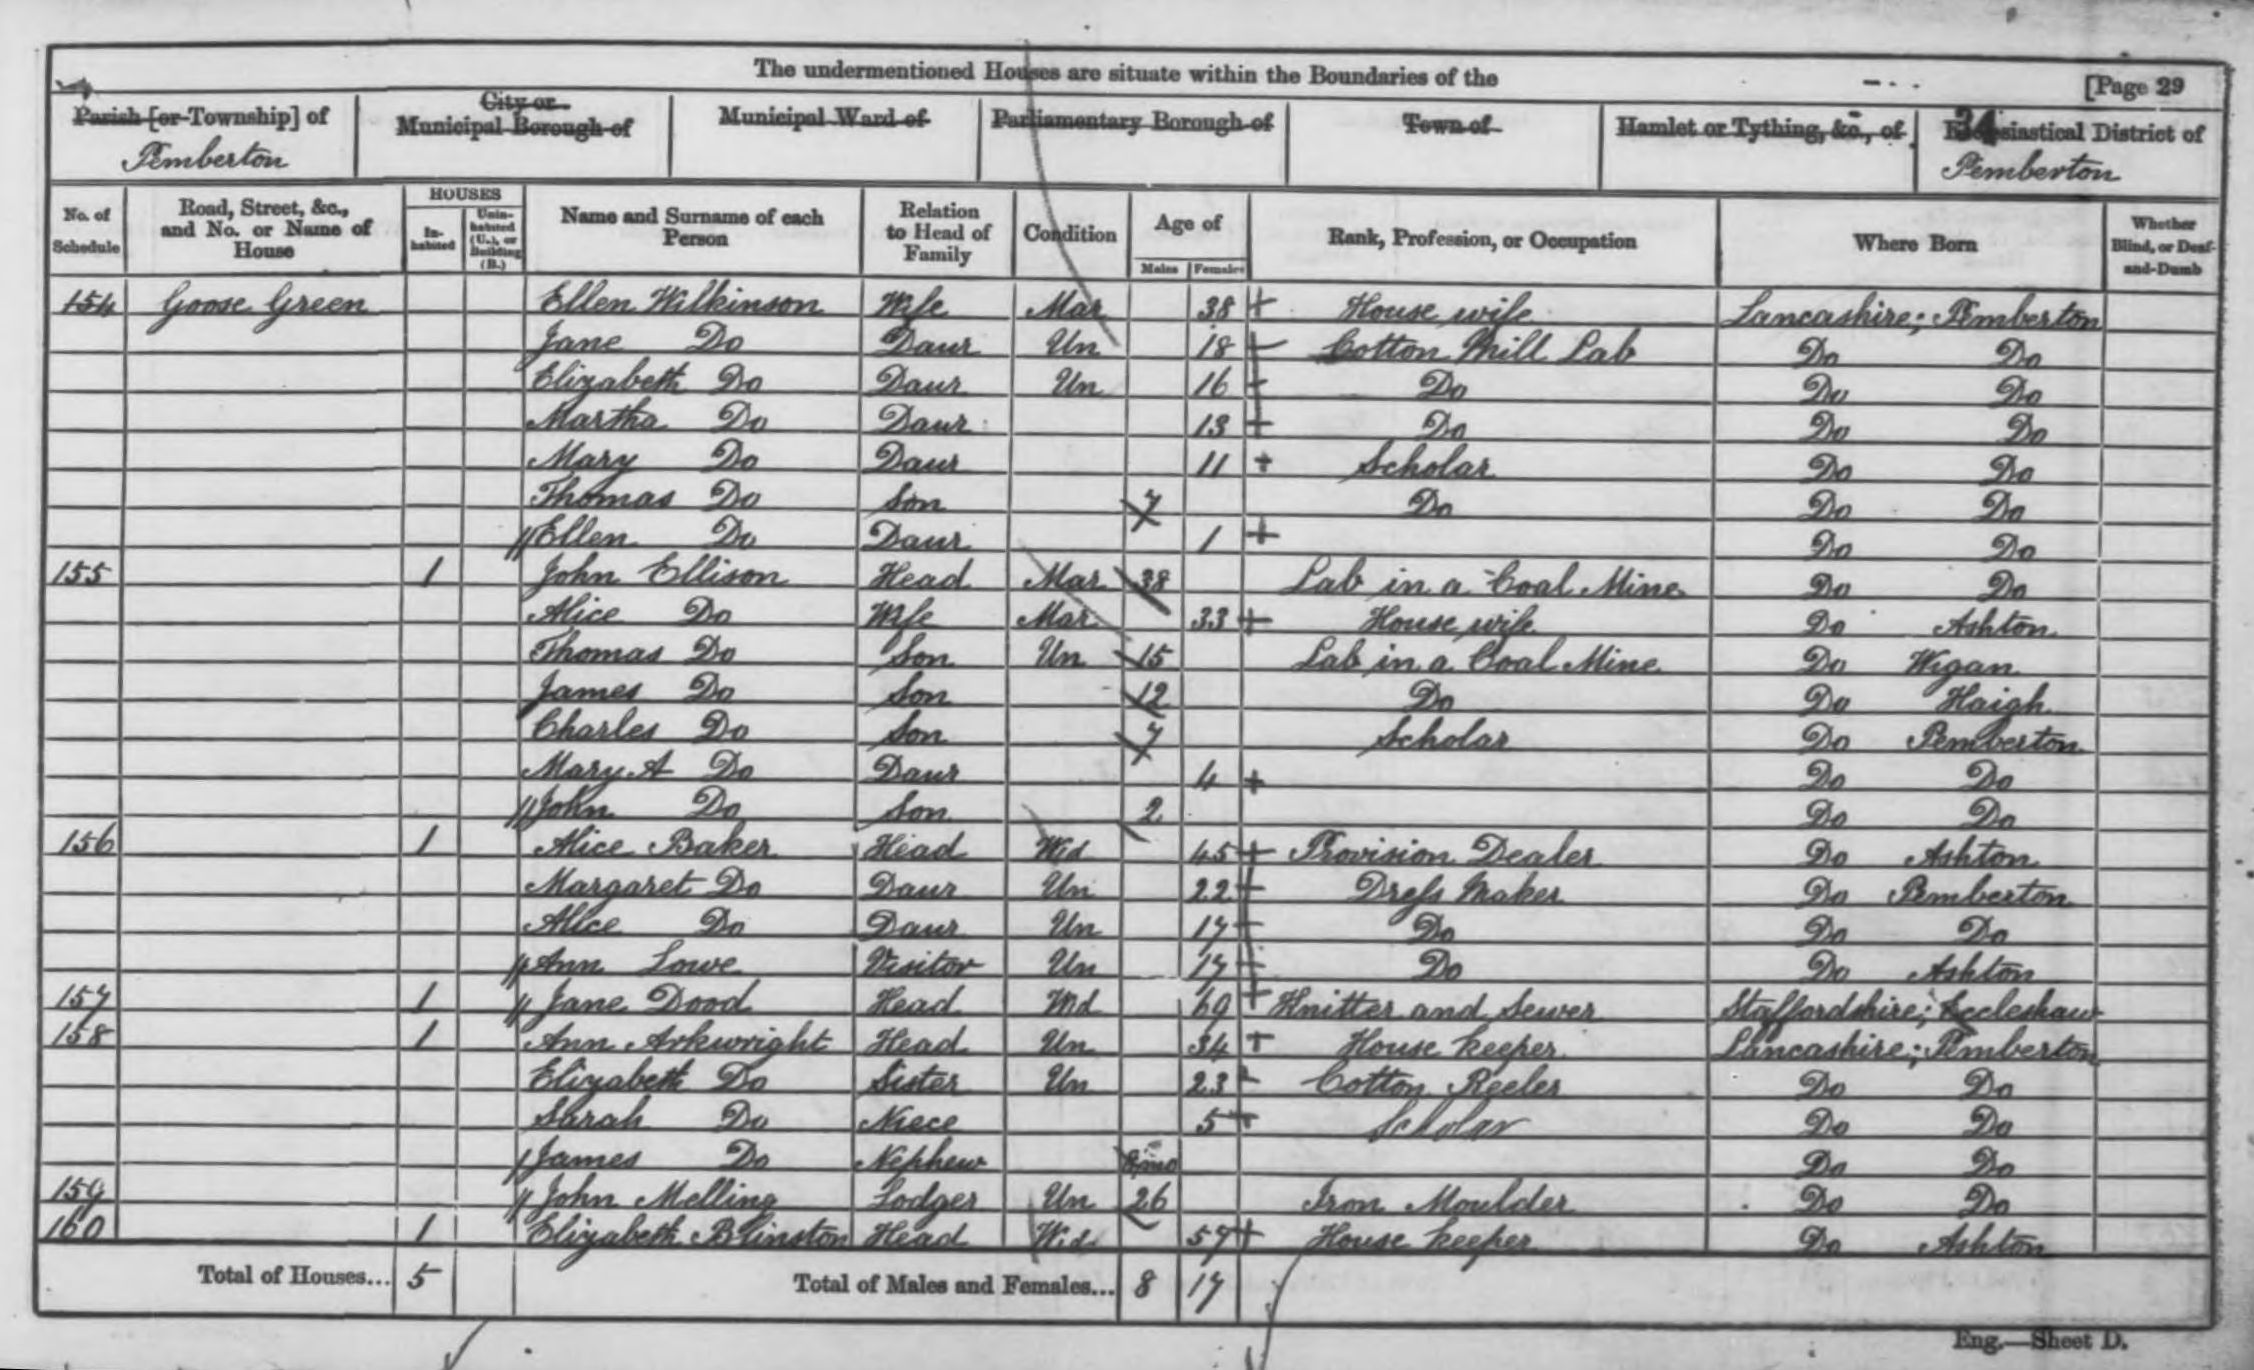 The undermentioned Houses are situate within the Boundaries of the [Page 29
Parish [or Township] of Pemberton City or Municipal Borough of Municipal Ward of Parliamentary Borough of Town of Hamlet or Tything, &c., of Ecclesiastical District of Pemberton
34
No. of Schedule Road, Street, &c., and No. or Name of House HOUSES Inhabited Uninhabited (U.), or Building (B.) Name and Surname of each Person Relation to Head of Family Condition Age of Males Females Rank, Profession, or Occupation Where Born Whether Blind, or Deaf-and-Dumb
154 Goose Green Ellen Wilkinson Wife Mar 38 House wife Lancashire; Pemberton
Jane Do Daur Un 18 Cotton Mill Lab Do Do
Elizabeth Do Daur Un 16 Do Do Do
Martha Do Daur 13 Do Do Do
Mary Do Daur 11 Scholar Do Do
Thomas Do Son 7 Do Do Do
Ellen Do Daur 1 Do Do
155 1 John Ellison Head Mar 38 Lab in a Coal Mine Do Do
Alice Do Wife Mar 33 House wife Do Ashton
Thomas Do Son Un 15 Lab in a Coal Mine Do Wigan
James Do Son 12 Do Do Haigh
Charles Do Son 7 Scholar Do Pemberton
Mary A Do Daur 4 Do Do
John Do Son 2 Do Do
156 1 Alice Baker Head Wid 45 Provision Dealer Do Ashton
Margaret Do Daur Un 22 Dress Maker Do Pemberton
Alice Do Daur Un 17 Do Do Do
Ann Lowe Visitor Un 17 Do Do Ashton
157 1 Jane Dood Head Wid 69 Knitter and Sewer Staffordshire; Eccleshaw
158 1 Ann Arkwright Head Un 34 House keeper Lancashire; Pemberton
Elizabeth Do Sister Un 23 Cotton Reeler Do Do
Sarah Do Niece 5 Scholar Do Do
James Do Nephew Do Do
159 John Melling Lodger Un 26 Iron Moulder Do Do
160 1 Elizabeth Blinston Head Wid 57 House keeper Do Ashton
Total of Houses... 5 Total of Males and Females... 8 17
Eng.—Sheet D.